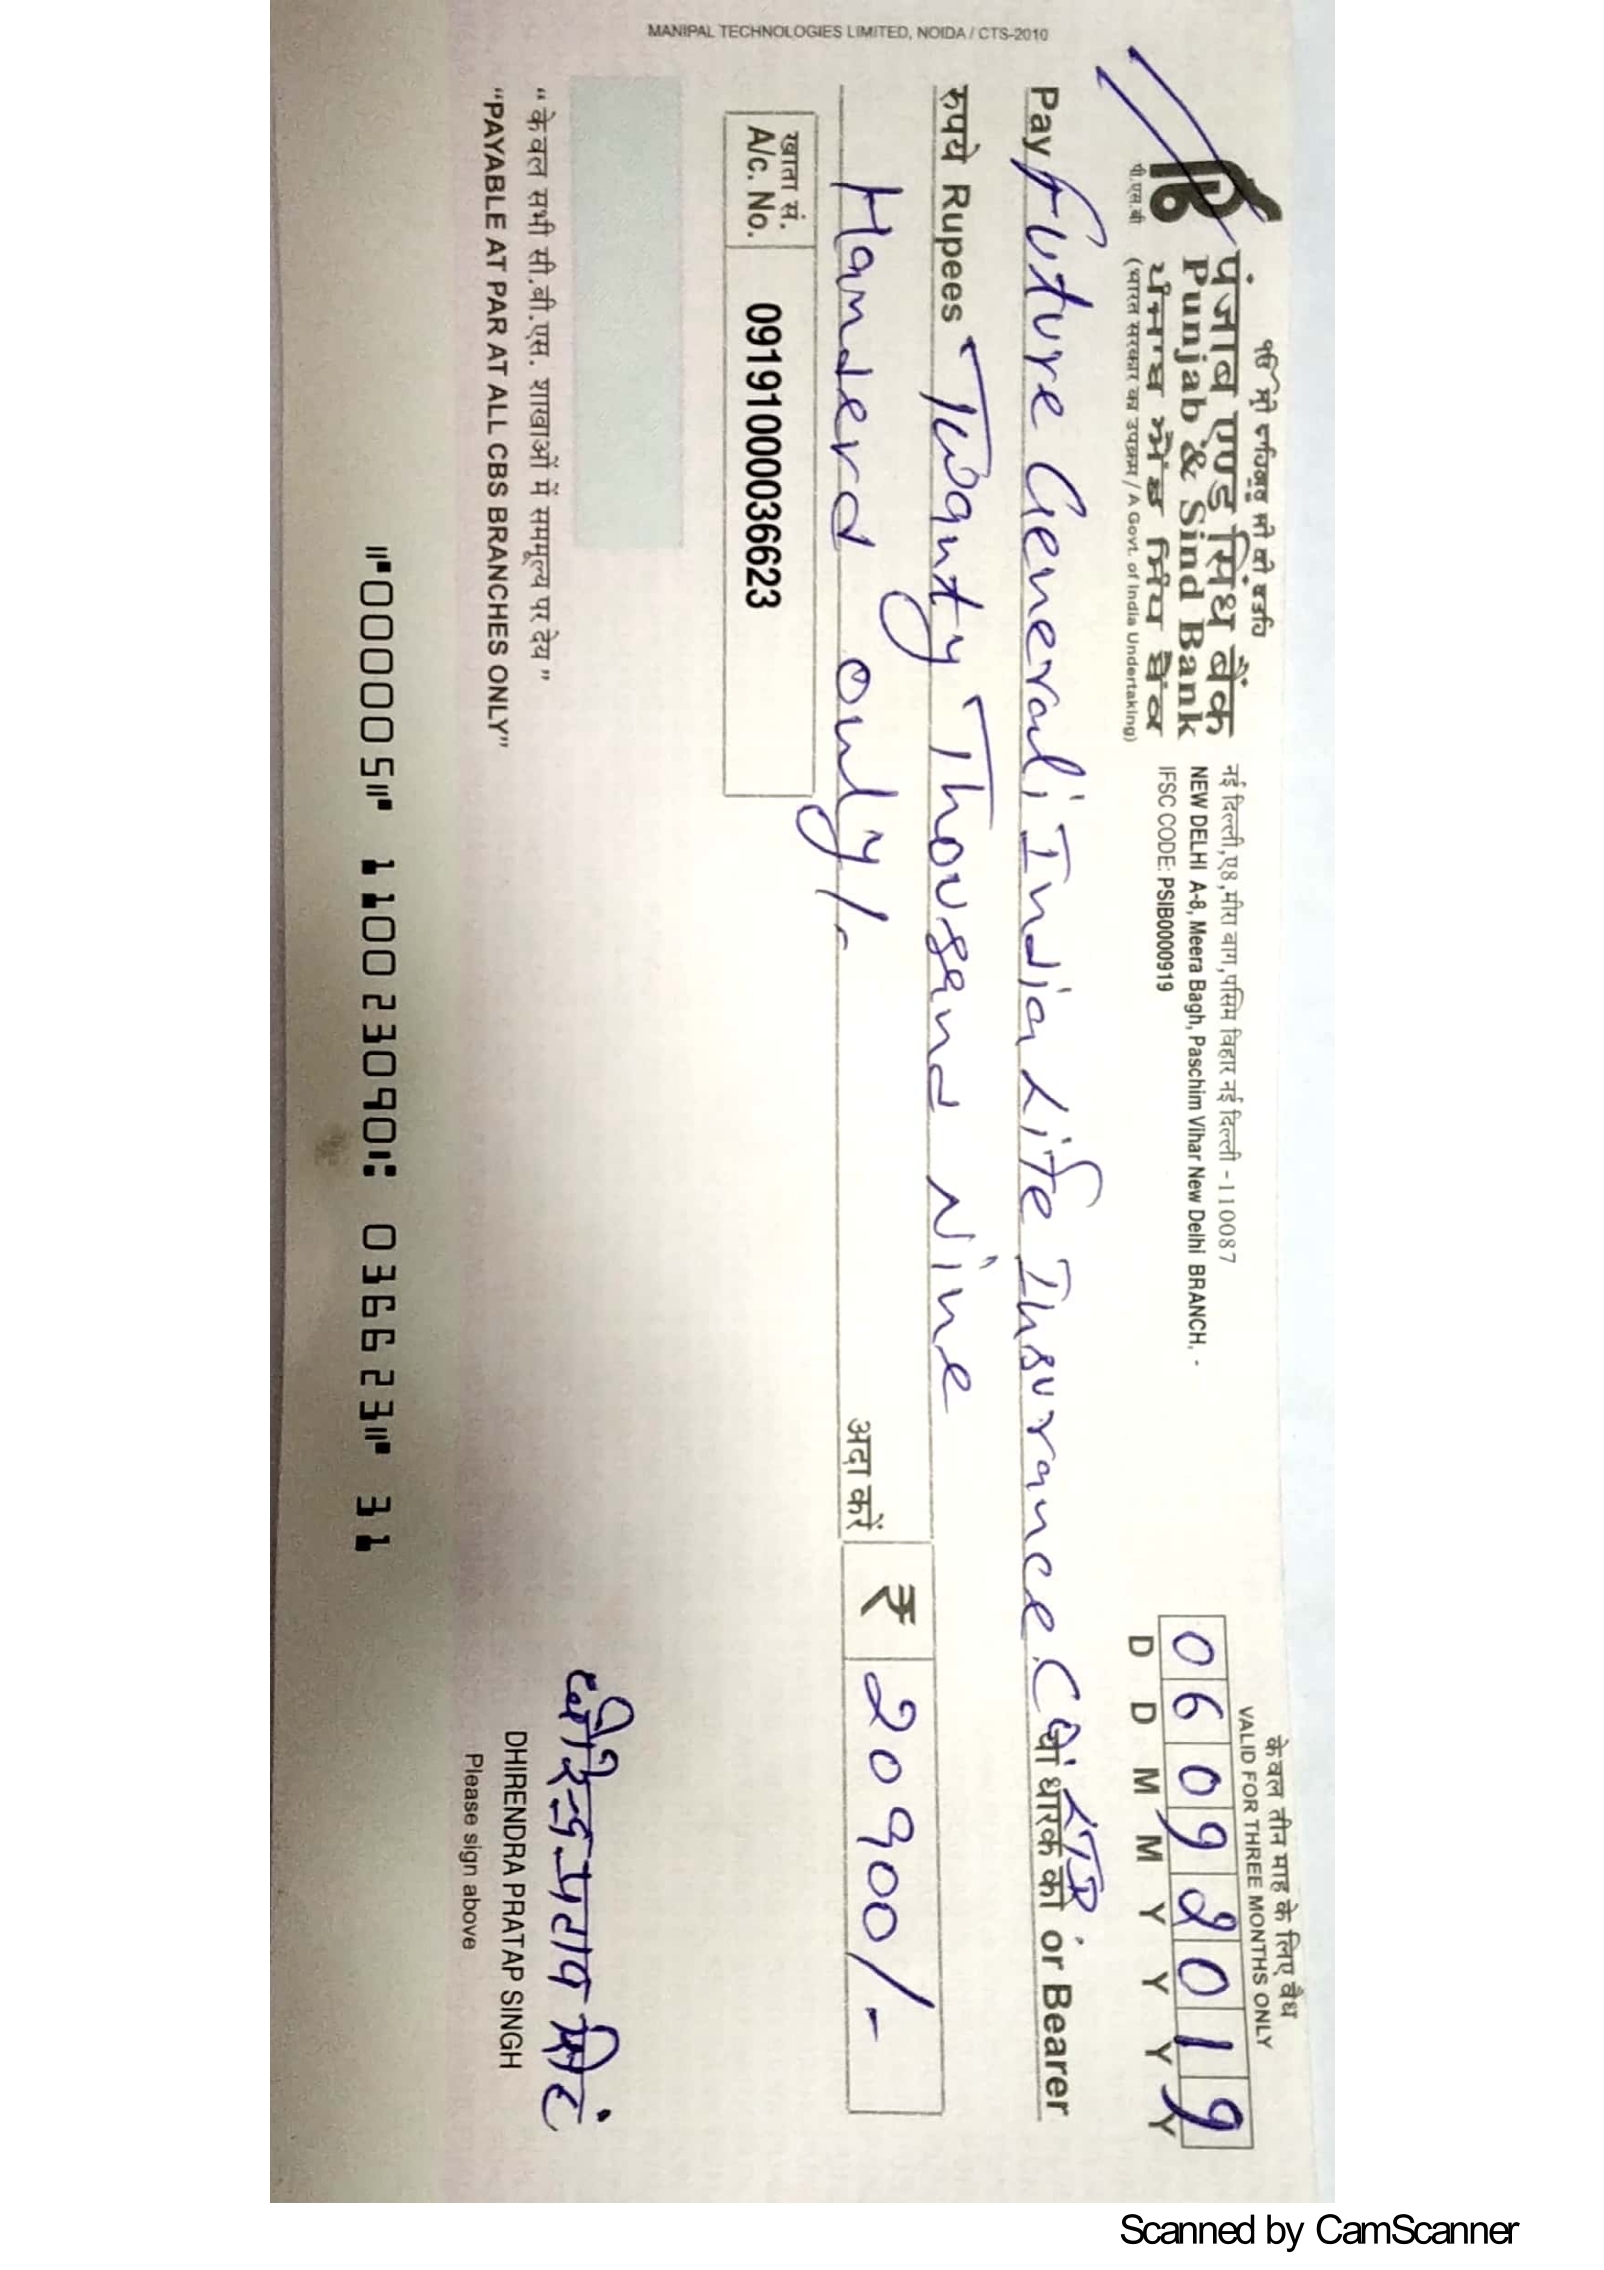 ੴ ਸ੍ਰੀ ਵਾਹਿਗੁਰੂ ਜੀ ਕੀ ਫਤਹਿ
पंजाब एण्ड सिंध बैंक
Punjab & Sind Bank
ਪੰਜਾਬ ਐਂਡ ਸਿੰਧ ਬੈਂਕ
पी.एस.बी
(भारत सरकार का उपक्रम / A Govt. of India Undertaking)
नई दिल्ली,ए8,मीरा बाग,पश्चिम विहार नई दिल्ली - 110087
NEW DELHI A-8, Meera Bagh, Paschim Vihar New Delhi BRANCH, -
IFSC CODE: PSIB0000919
केवल तीन माह के लिए वैध
VALID FOR THREE MONTHS ONLY
06092019
D D M M Y Y Y Y
Pay Future Generali India Life Insurance Co. LTD. या धारक को or Bearer
रुपये Rupees Twanty Thousand Nine
Handerd only/- अदा करें ₹ 20900/-
खाता सं.
A/c. No. 09191000036623
धीरेन्द्र प्रताप सिंह
DHIRENDRA PRATAP SINGH
Please sign above
“ केवल सभी सी.बी.एस. शाखाओं में सममूल्य पर देय ”
“PAYABLE AT PAR AT ALL CBS BRANCHES ONLY”
⑈000005⑈ 110023090⑆ 036623⑈ 31
MANIPAL TECHNOLOGIES LIMITED, NOIDA / CTS-2010
Scanned by CamScanner